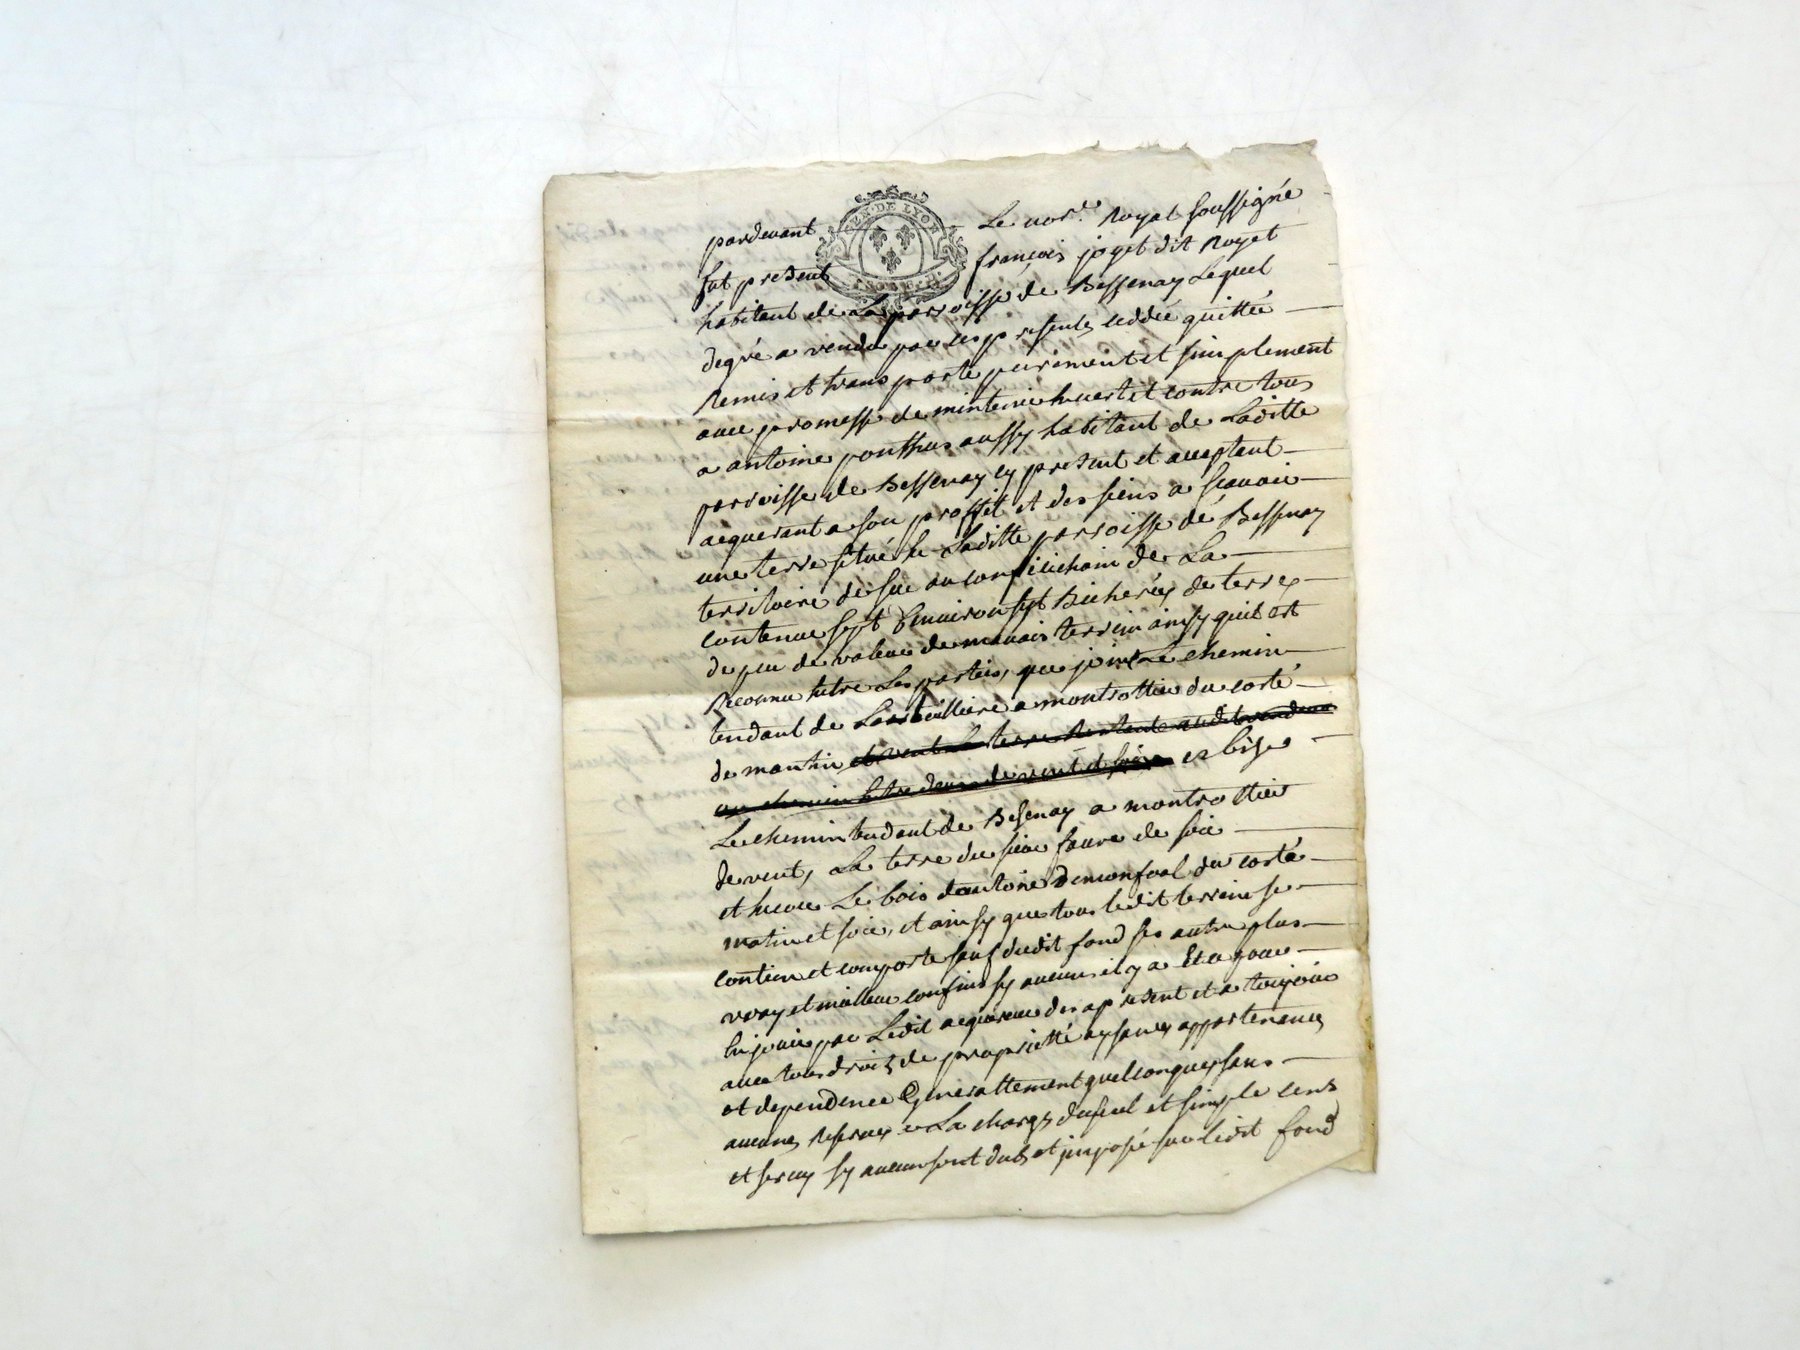 GEN. DE LYON
pardevant Le nore. Royal soussigné
fut present françois joget dit Royet
habitant de La parroisse de Bessenay Lequel
degré a vendu par ces presentes ceddée quittée
Remis et transporte purement et simplement
avec promesse de mintenir envers et contre tous
a antoine ponthus aussy habitant de Laditte
parroisse de Bessenay cy present et acceptant
acquerant a son proffit et des siens a scavoir
une terre situé en Laditte parroisse de Bessenay
territoire de sur de La
contenue sept Environ sept Bicherés de terres
de peu de valeur de mauvais terrein ainsy quil est
Reconnu entre Les parties, que joint Le chemin
tendant de a montrottier du costé
de mantin et vent La terre Restante audit vendeur
un chemin Entre deux de vent et soir et bize
Le chemin tendant de Bessenay a montrottier
de vent, La terre du sieur faure de soir
et encore Le bois dantoine Demonfoal du costé
matin et soir, et ainsy que tous ledit terrein se
contien et comporte sauf dudit fond ses autre plus
vray et milleur confins sy aucuns il y a Et a jouir
en jouir par Ledit acquereur des apresent et a toujour
avec tous droits de proprietté aysances appartenances
et dependence Generallement quelconques sans
aucunes Reserves a La charge du seul et simple cens
et servy sy aucun sont dub et imposé sur ledit fond